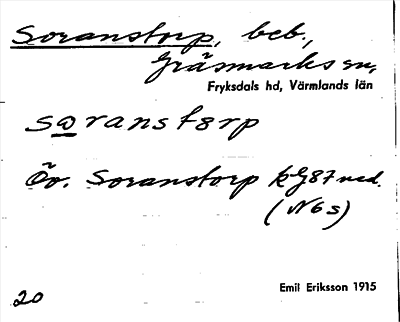 Soranstorp, beb.,
Gräsmarks sn,
Fryksdals hd, Värmlands län
sωranstɵrp
Öv. Soranstorp kG87 ned.
(N6s)
Emil Eriksson 1915
20